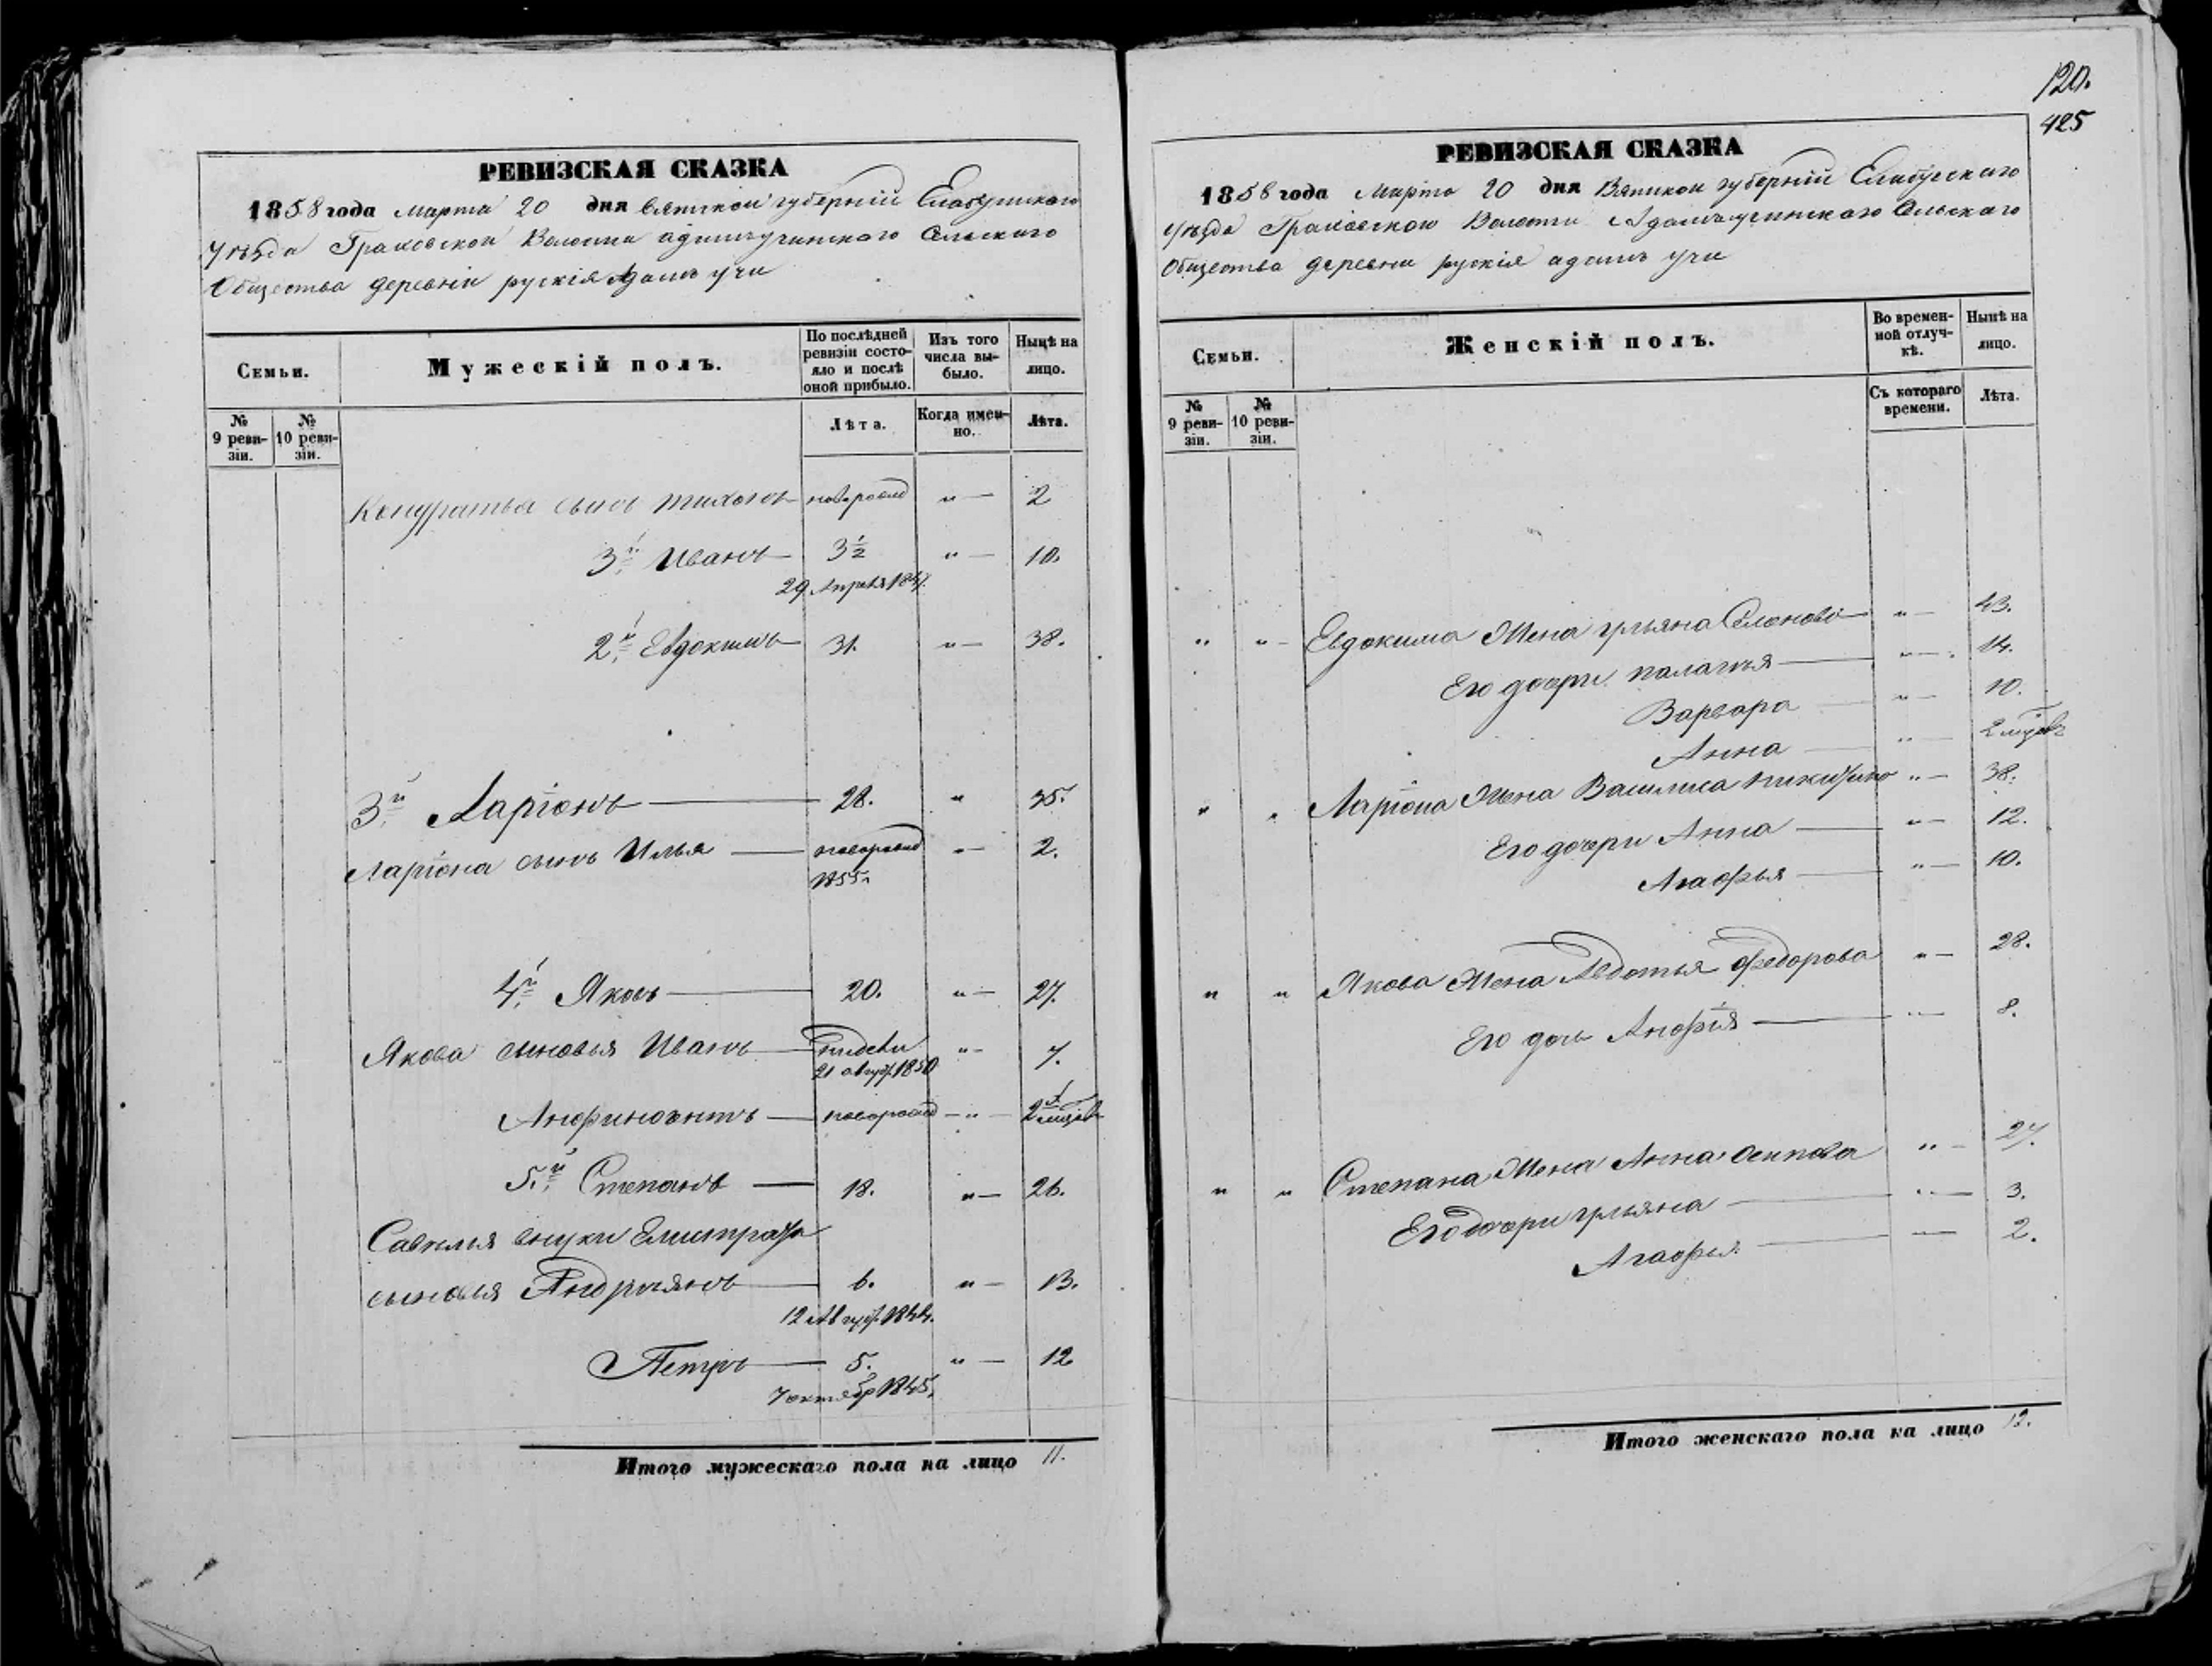 120.
425
РЕВИЗСКАЯ СКАЗКА
1858 года Марта 20 дня Вятской губерніи Елабужскаго
Уѣзда Граховской Волости адамъучинскаго Сельскаго
Общества деревни рускія Адамъ учи
Семьи.
Мужескій полъ.
По послѣдней ревизіи состояло и послѣ оной прибыло.
Изъ того числа выбыло.
Нынѣ на лицо.
№ 9 ревизіи.
№ 10 ревизіи.
Лѣта.
Когда именно.
Лѣта.
Кондратья сынъ Тихонъ — новорожд " — 2
3й Иванъ — 3½ " — 10.
29 Апреля 1847.
2й Евдокимъ — 31. " — 38.
3й Ларіонъ — 28. " 35.
Ларіона сынъ Илья — новорожд " — 2.
1855.
4й Яковъ — 20. " — 27.
Якова сыновья Иванъ — " — 7.
21 август 1850
— новорожд — " — 2
5й Степанъ — 18. " — 26.
Савелья внуки
сыновья Андриянъ — 6. " — 13.
12 Август 1844.
Петръ — 5. " — 12
7 октябр 1845.
Итого мужескаго пола на лицо 11.
РЕВИЗСКАЯ СКАЗКА
1858 года Марта 20 дня Вятской губерніи Елабужскаго
Уѣзда Граховской Волости Адамъучинскаго Сельскаго
Общества деревни рускія адамъ учи
Семьи.
Женскій полъ.
Во временной отлучкѣ.
Нынѣ на лицо.
№ 9 ревизіи.
№ 10 ревизіи.
Съ котораго времени.
Лѣта.
" " — Евдокима Жена ульяна — " — 43.
Его дочери палагья — " — 14.
Варвара — " — 10.
Анна — " — 2
" " Ларіона Жена Василиса никитина " — 38.
Его дочери Анна — " — 12.
Агафья — " — 10.
" " Якова Жена Авдотья Федорова " — 28.
Его дочь Анофія — " — 8.
" " Степана Жена Анна осипова " — 27.
Его дочери ульяна — " — 3.
Агафья — — 2.
Итого женскаго пола на лицо 12.